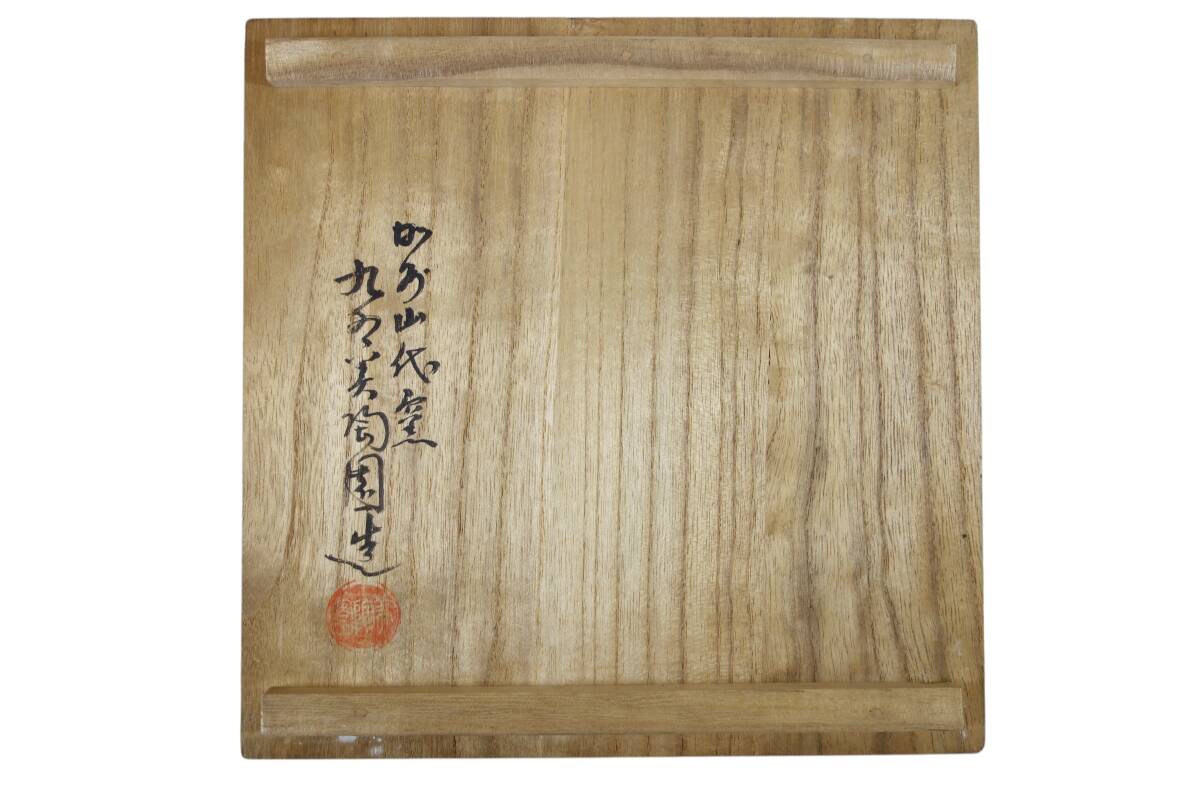 加州山代窯
九谷美陶園造